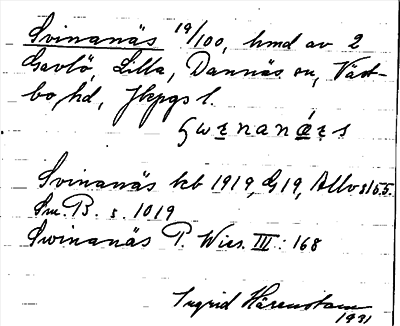 Svinanäs 19/100, hmd av 2
Gavlö, Lilla, Dannäs sn, Väst-
bo hd, Jkpgs l.
Svinanäs kb 1919, G19, Allvs 155.
Sm. B. s. 1019
Swinanäs P. Wies. III: 168
Ingrid Härenstam
1931